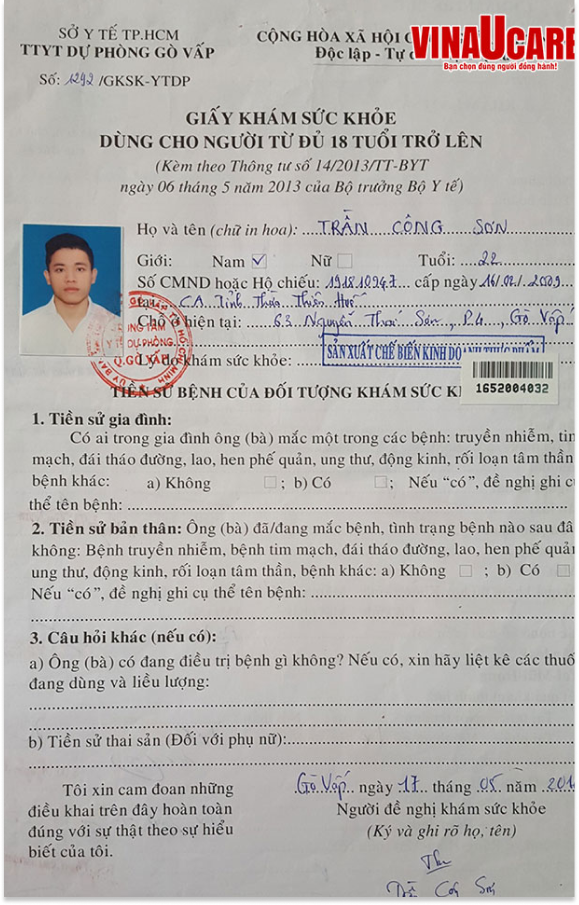 SỞ Y TẾ TP.HCM
TTYT DỰ PHÒNG GÒ VẤP
Số: 1292 /GKSK-YTDP
CỘNG HÒA XÃ HỘI C
Độc lập - Tự
VINAUCARE
Bạn chọn đúng người đồng hành!
GIẤY KHÁM SỨC KHỎE
DÙNG CHO NGƯỜI TỪ ĐỦ 18 TUỔI TRỞ LÊN
(Kèm theo Thông tư số 14/2013/TT-BYT
ngày 06 tháng 5 năm 2013 của Bộ trưởng Bộ Y tế)
Họ và tên (chữ in hoa): TRẦN CÔNG SƠN
Giới: Nam Nữ Tuổi: 22
Số CMND hoặc Hộ chiếu: cấp ngày 16/02/2009
tại: CA. Tỉnh Thừa Thiên Huế
Chỗ ở hiện tại: 63 Nguyễn Thái Sơn, P4, Gò Vấp
Lý do khám sức khỏe: SẢN XUẤT CHẾ BIẾN KINH DOANH THỰC PHẨM
TRUNG TÂM
Y TẾ DỰ PHÒNG
Q.GÒ VẤP
1652004032
TIỀN SỬ BỆNH CỦA ĐỐI TƯỢNG KHÁM SỨC
1. Tiền sử gia đình:
Có ai trong gia đình ông (bà) mắc một trong các bệnh: truyền nhiễm, tim
mạch, đái tháo đường, lao, hen phế quản, ung thư, động kinh, rối loạn tâm thần
bệnh khác: a) Không ; b) Có ; Nếu “có”, đề nghị ghi c
thể tên bệnh:
2. Tiền sử bản thân: Ông (bà) đã/đang mắc bệnh, tình trạng bệnh nào sau đâ
không: Bệnh truyền nhiễm, bệnh tim mạch, đái tháo đường, lao, hen phế quản
ung thư, động kinh, rối loạn tâm thần, bệnh khác: a) Không ; b) Có
Nếu “có”, đề nghị ghi cụ thể tên bệnh:
3. Câu hỏi khác (nếu có):
a) Ông (bà) có đang điều trị bệnh gì không? Nếu có, xin hãy liệt kê các thuố
đang dùng và liều lượng:
b) Tiền sử thai sản (Đối với phụ nữ):
Tôi xin cam đoan những
điều khai trên đây hoàn toàn
đúng với sự thật theo sự hiểu
biết của tôi.
Gò Vấp ngày 17 tháng 05 năm 201
Người đề nghị khám sức khỏe
(Ký và ghi rõ họ, tên)